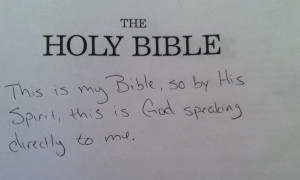 THE
HOLY BIBLE
This is my Bible, so by His
Spirit, this is God speaking
directly to me.